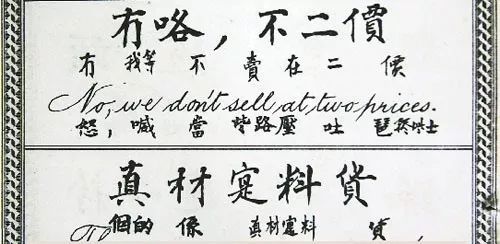 冇咯，不二價
冇 我等 不 賣 在 二 價
No, we don't sell at two prices.
怒，喊 當 路 壓 吐 琶
真材寔料貨
個的 係 真材寔料 貨